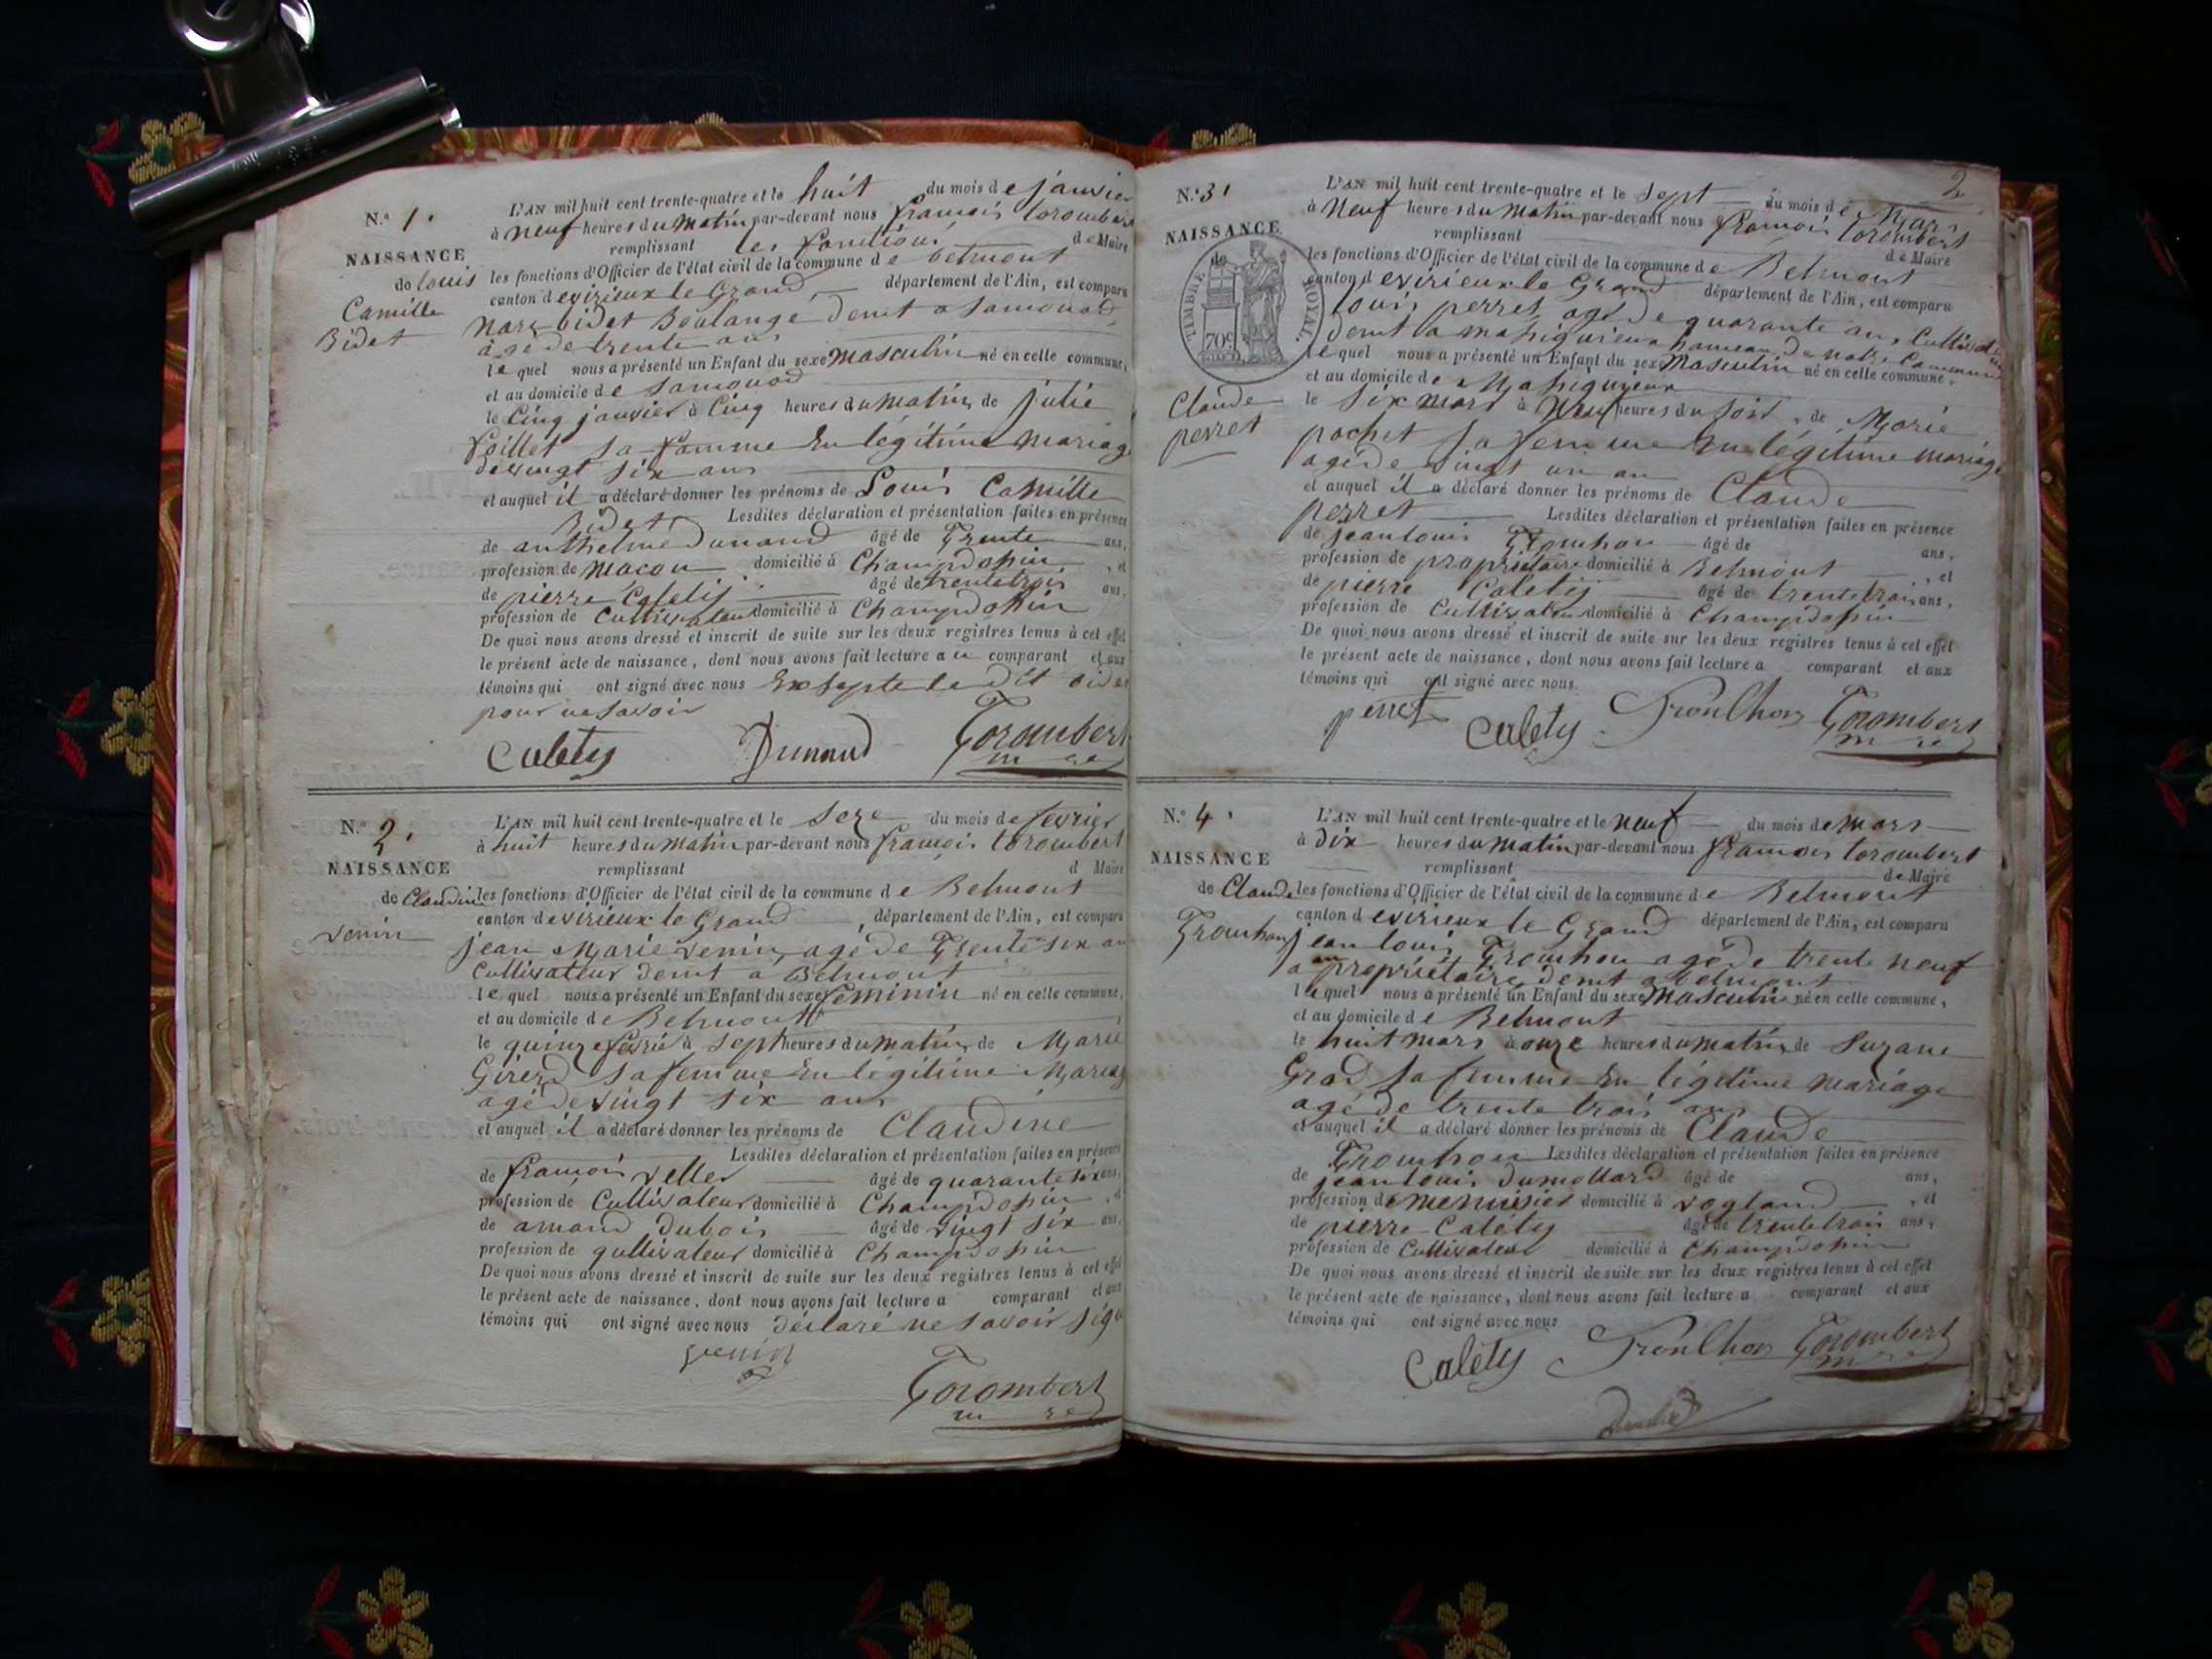 N.º 1.
NAISSANCE
de Louis
Camille
Bidet
L'AN mil huit cent trente-quatre et le huit du mois de janvier
à neuf heures du matin par-devant nous françois torombert
remplissant les fonctions de Maire
les fonctions d'Officier de l'état civil de la commune de belmont
canton de virieux le Grand département de l'Ain, est comparu
bidet Boulange demt a
âgé de trente ans
lequel nous a présenté un Enfant du sexe masculin né en celle commune,
et au domicile de
le Cinq janvier à Cinq heures du matin, de julie
sa famme En légitime mariage
de vingt six ans
et auquel il a déclaré donner les prénoms de Louis Camille
Bidet Lesdites déclaration et présentation faites en présence
de anthelme Dunand âgé de Trente ans,
profession de macon domicilié à Champdossin, et
de pierre Calety âgé de trente trois ans,
profession de Cultivateur domicilié à Champdossin
De quoi nous avons dressé et inscrit de suite sur les deux registres tenus à cet effet
le présent acte de naissance, dont nous avons fait lecture au comparant et aux
témoins qui ont signé avec nous Exsepte le dit bidet
pour ne savoir
Calety Dunand Torombert
mre
N.º 2.
NAISSANCE
de Claudine
venin
L'AN mil huit cent trente-quatre et le seze du mois de fevrier
à huit heures du matin par-devant nous françois torombert
remplissant d Maire
les fonctions d'Officier de l'état civil de la commune de Belmont
canton de virieux le Grand, département de l'Ain, est comparu
jean Marie venin, agé de Trente six an
Cultivateur demt a Belmont
lequel nous a présenté un Enfant du sexe feminin né en celle commune,
et au domicile de Belmont
le quinze fevrié à sept heures du matin, de Marie
Girerd sa femme En légitime Mariag
agé de vingt six ans
et auquel il a déclaré donner les prénoms de Claudine
Lesdites déclaration et présentation faites en présence
de françois vellet âgé de quarante six ans,
profession de Cultivateur domicilié à Champdossin, et
de amand Dubois âgé de vingt six ans,
profession de qultivateur domicilié à Champdossin
De quoi nous avons dressé et inscrit de suite sur les deux registres tenus à cet effet
le présent acte de naissance, dont nous avons fait lecture a comparant et aux
témoins qui ont signé avec nous déclaré ne savoir signé
venin
Torombert
mre
2
N.º 3.
NAISSANCE
de
TIMBRE ROYAL.
70c
Claude
perret
L'AN mil huit cent trente-quatre et le sept du mois de Mars
à neuf heures du matin par-devant nous françois torombert
remplissant de Maire
les fonctions d'Officier de l'état civil de la commune de Belmont
canton de virieux le Grand département de l'Ain, est comparu
louis perret agé de quarante ans, Cultivateur
demt a massigneux hameau de notre Commune
lequel nous a présenté un Enfant du sexe Masculin né en celle commune,
et au domicile de
le six mars à neuf heures du soir, de Marie
pochet sa femme En légitime mariage
agé de vingt un an
et auquel il a déclaré donner les prénoms de Claude
perret Lesdites déclaration et présentation faites en présence
de jean louis Tronchon âgé de ans,
profession de propriétaire domicilié à Belmont, et
de pierre Calety âgé de trente trois ans,
profession de Cultivateur domicilié à Champdossin
De quoi nous avons dressé et inscrit de suite sur les deux registres tenus à cet effet
le présent acte de naissance, dont nous avons fait lecture a comparant et aux
témoins qui ont signé avec nous.
perret Calety Tronchon Torombert
mre
N.º 4.
NAISSANCE
de Claude
Tronchon
L'AN mil huit cent trente-quatre et le neuf du mois de mars
à dix heures du matin par-devant nous françois torombert
remplissant de Maire
les fonctions d'Officier de l'état civil de la commune de Belmont
canton de virieux le Grand département de l'Ain, est comparu
jean louis Tronchon agé de trente neuf
an propriétaire demt a belmont
lequel nous a présenté un Enfant du sexe Masculin né en celle commune,
et au domicile de Belmont
le huit mars à onze heures du matin, de Suzane
Grad sa femme En légitime mariage
agé de trente trois ans
et auquel il a déclaré donner les prénoms de Claude
Tronchon Lesdites déclaration et présentation faites en présence
de jean louis Dumollard âgé de ans,
profession de menuisier domicilié à vogland, et
de pierre Calety âgé de trente trois ans,
profession de Cultivateur domicilié à Champdossin
De quoi nous avons dressé et inscrit de suite sur les deux registres tenus à cet effet
le présent acte de naissance, dont nous avons fait lecture a comparant et aux
témoins qui ont signé avec nous
Calety Tronchon Torombert
mre